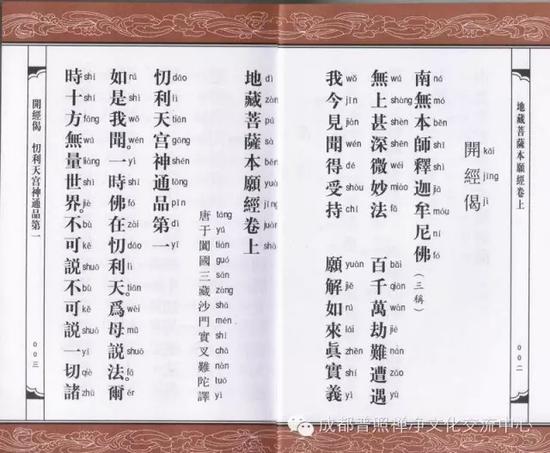 地藏菩薩本願經卷上
開經偈
南無本師釋迦牟尼佛(三稱)
無上甚深微妙法 百千萬劫難遭遇
我今見聞得受持 願解如來眞實義
〇〇二
地藏菩薩本願經卷上
唐于闐國三藏沙門實叉難陀譯
忉利天宮神通品第一
如是我聞。一時佛在忉利天。爲母說法。爾
時十方無量世界。不可說不可說一切諸
開經偈 忉利天宮神通品第一
〇〇三
成都普照禅净文化交流中心